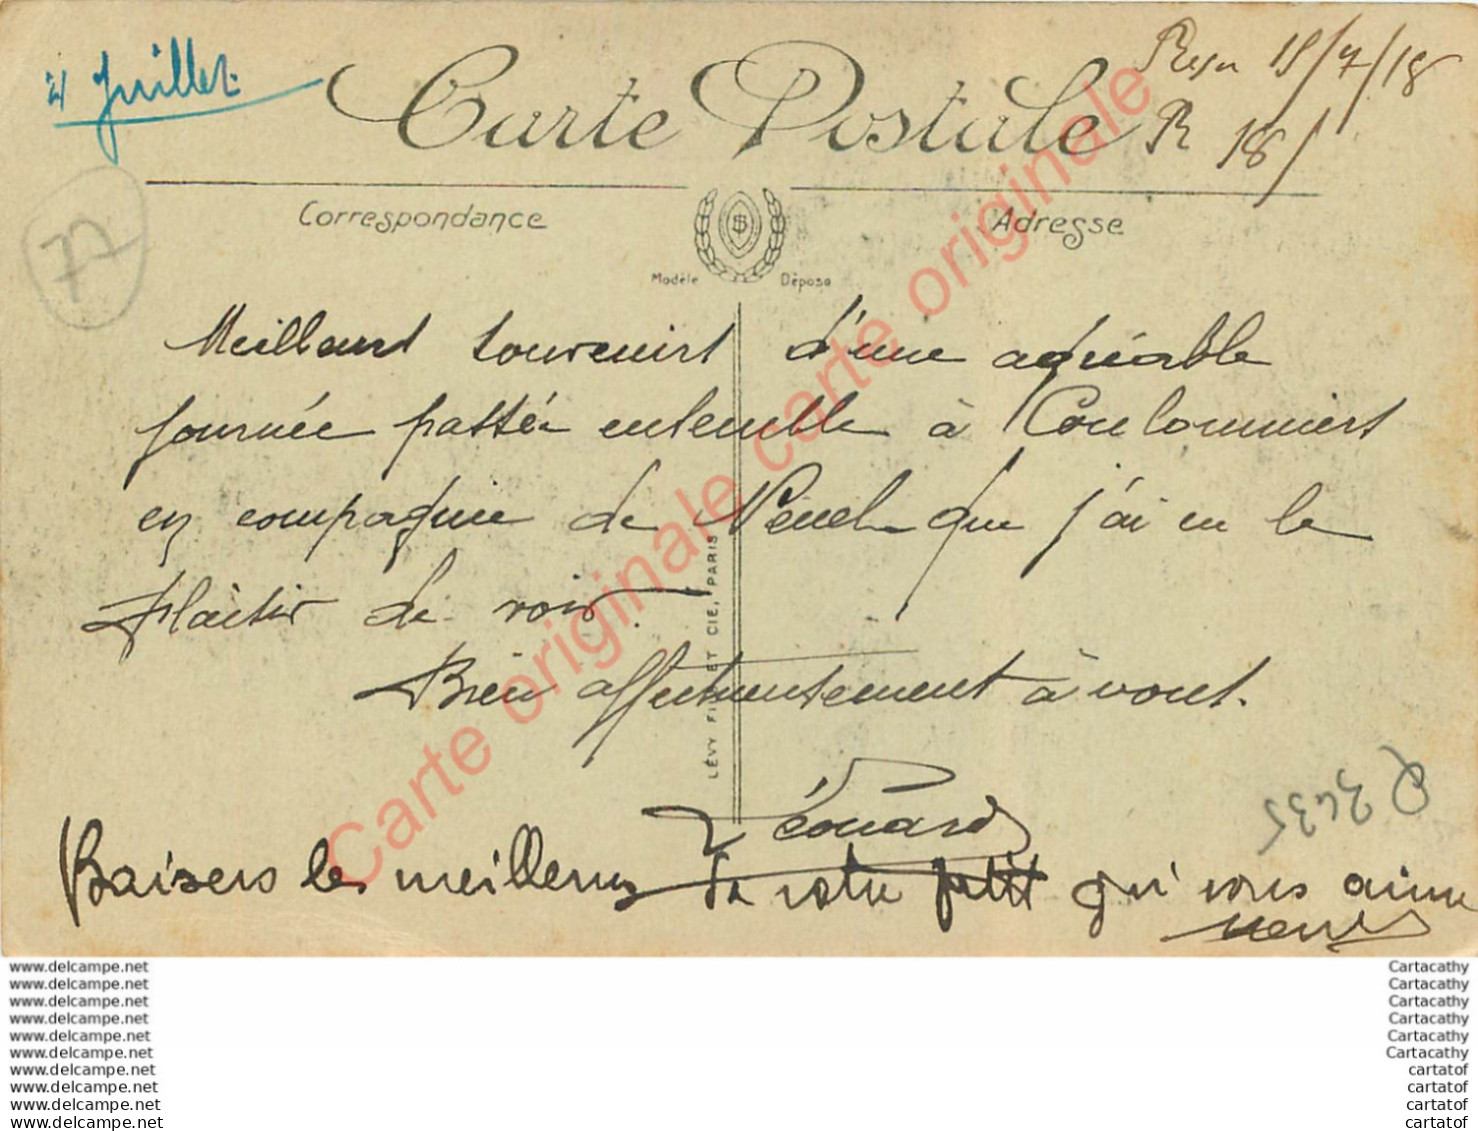 4 Juillet
Reçu 15/7/18
R 18/
Carte Postale
77
Correspondance
Adresse
Modèle Déposé
Meilleurs souvenirs d'une agréable
journée passée ensemble à Coulommiers
en compagnie de que j'ai eu le
Plaisir de voir.
Bien affectueusement à vous.
Édouard
Baisers les meilleurs de votre petit qui vous aime
LÉVY FILS ET CIE, PARIS
R 3435
Carte originale carte originale
www.delcampe.net
www.delcampe.net
www.delcampe.net
www.delcampe.net
www.delcampe.net
www.delcampe.net
www.delcampe.net
www.delcampe.net
www.delcampe.net
www.delcampe.net
Cartacathy
Cartacathy
Cartacathy
Cartacathy
Cartacathy
Cartacathy
cartatof
cartatof
cartatof
cartatof